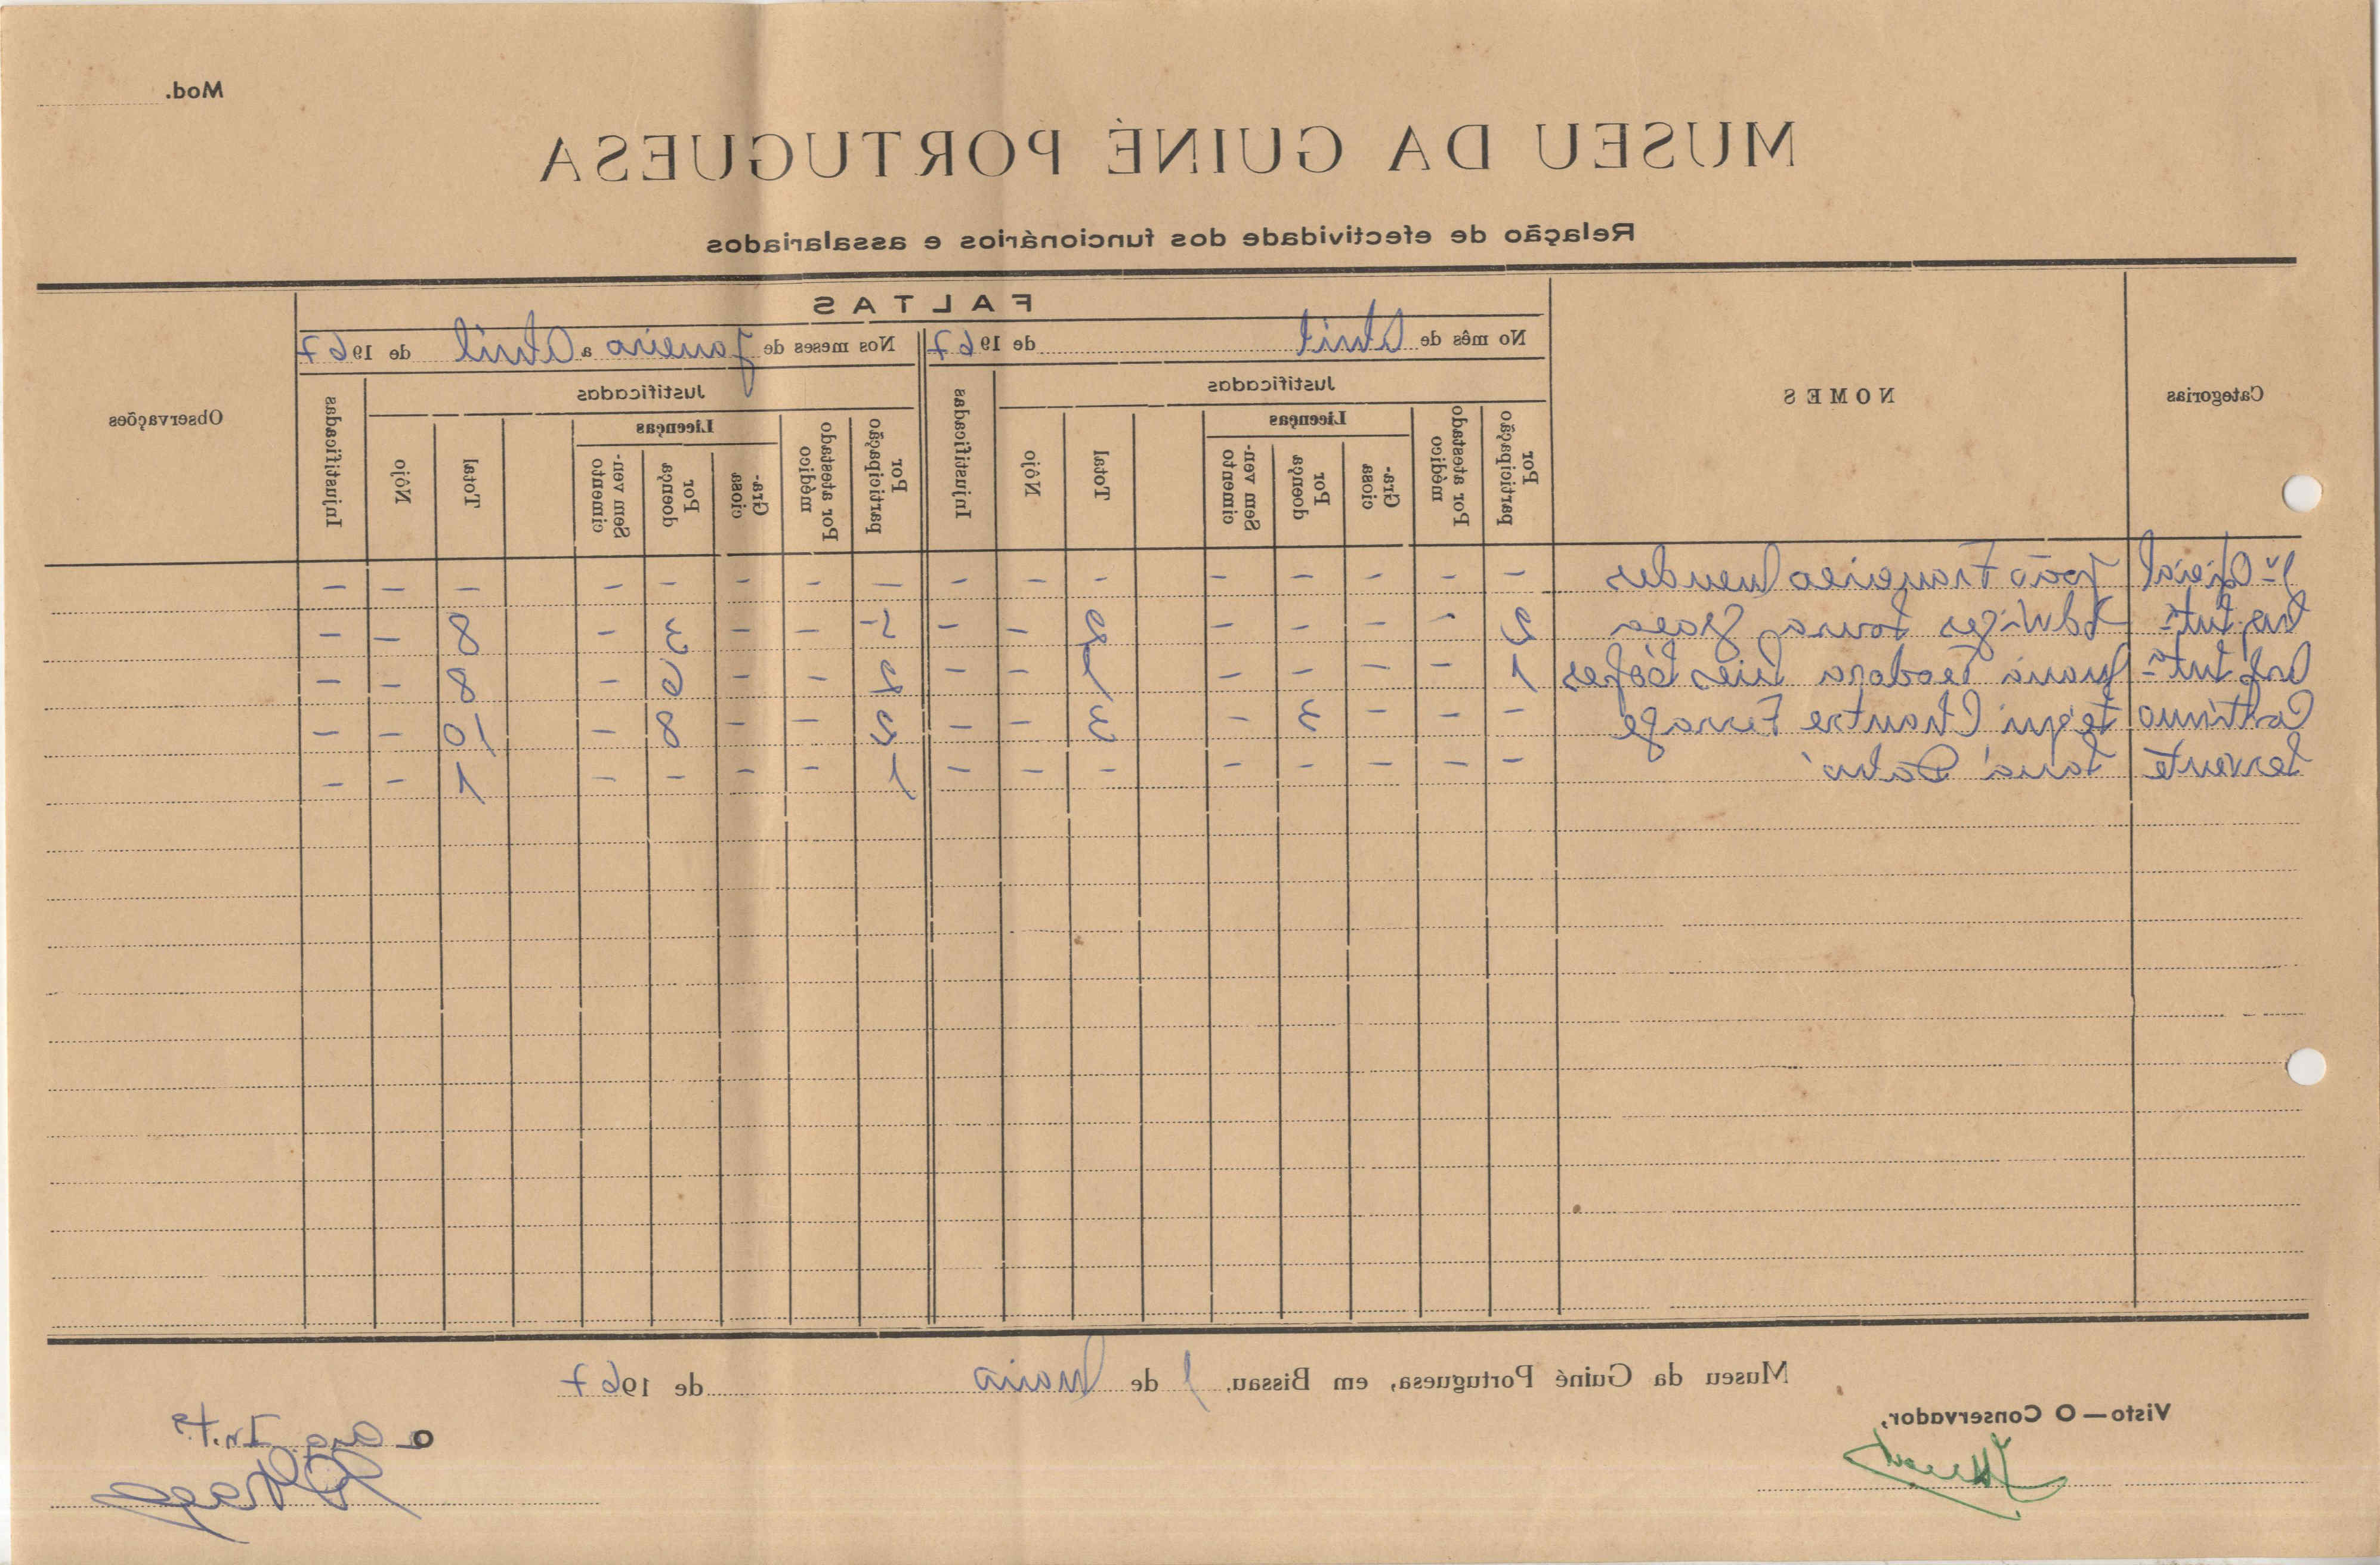 Mod.
MUSEU DA GUINÉ PORTUGUESA
Relação de efectividade dos funcionários e assalariados
Categorias
NOMES
FALTAS
No mês de Abril de 1967
Nos meses de Janeiro a Abril de 1967
Observações
Justificadas
Justificadas
Por participação
Por atestado médico
Licenças
Gra-ciosa
Por doença
Sem ven-cimento
Total
Nôjo
Injustificadas
Por participação
Por atestado médico
Licenças
Gra-ciosa
Por doença
Sem ven-cimento
Total
Nôjo
Injustificadas
1º Oficial João Francisco Mendes – – – – – – – – – – – – – – – –
Edwiges Graça 2 - – – – 2 – – 5 – – 3 – 8 – –
Maria Teodora Lopes 1 – – – – 1 – – 2 – – 6 – 8 – –
Contínuo Chantre – – – 3 – 3 – – 2 – – 8 – 10 – –
Servente – – – – – – – – 1 – – – – 1 – –
Museu da Guiné Portuguesa, em Bissau, 1 de Maio de 1967
Visto—O Conservador,
O